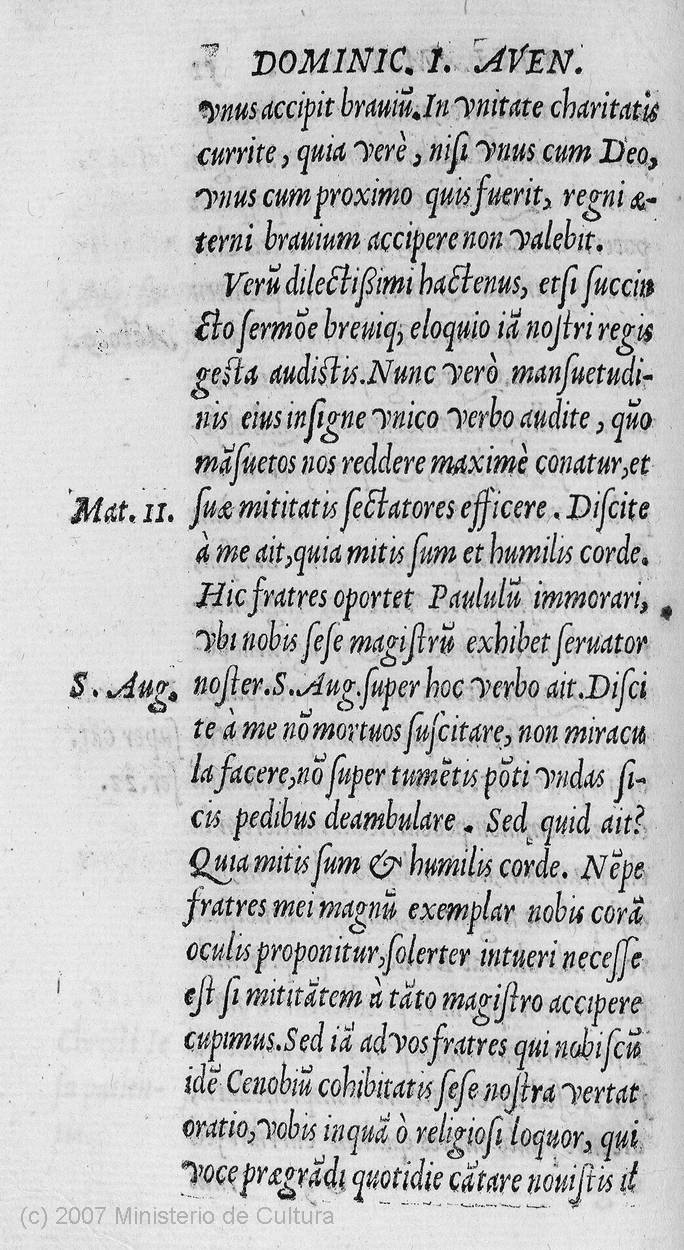 DOMINIC. I. AVEN.
vnus accipit brauiũ. In vnitate charitatis
currite, quia verè, niſi vnus cum Deo,
vnus cum proximo quis fuerit, regni æ-
terni brauium accipere non valebit.
Verũ dilectiſsimi hactenus, etſi ſuccin
cto ſermõe breuiq; eloquio iã noſtri regis
geſta audiſtis. Nunc verò manſuetudi-
nis eius inſigne vnico verbo audite, quo
mãſuetos nos reddere maximè conatur, et
Mat. 11.
ſuæ mititatis ſectatores efficere. Diſcite
à me ait, quia mitis ſum et humilis corde.
Hic fratres oportet Paululũ immorari,
vbi nobis ſeſe magiſtrũ exhibet ſeruator
S. Aug.
noſter. S. Aug. ſuper hoc verbo ait. Diſci
te à me nõ mortuos ſuſcitare, non miracu
la facere, nõ ſuper tumẽtis põti vndas ſi-
cis pedibus deambulare. Sed quid ait?
Quia mitis ſum & humilis corde. Nẽpe
fratres mei magnũ exemplar nobis corã
oculis proponitur, ſolerter intueri neceſſe
eſt ſi mititãtem à tãto magiſtro accipere
cupimus. Sed iã ad vos fratres qui nobiſcũ
idẽ Cenobiũ cohibitatis ſeſe noſtra vertat
oratio, vobis inquã ò religioſi loquor, qui
voce prægrãdi quotidie cãtare nouiſtis il
(c) 2007 Ministerio de Cultura